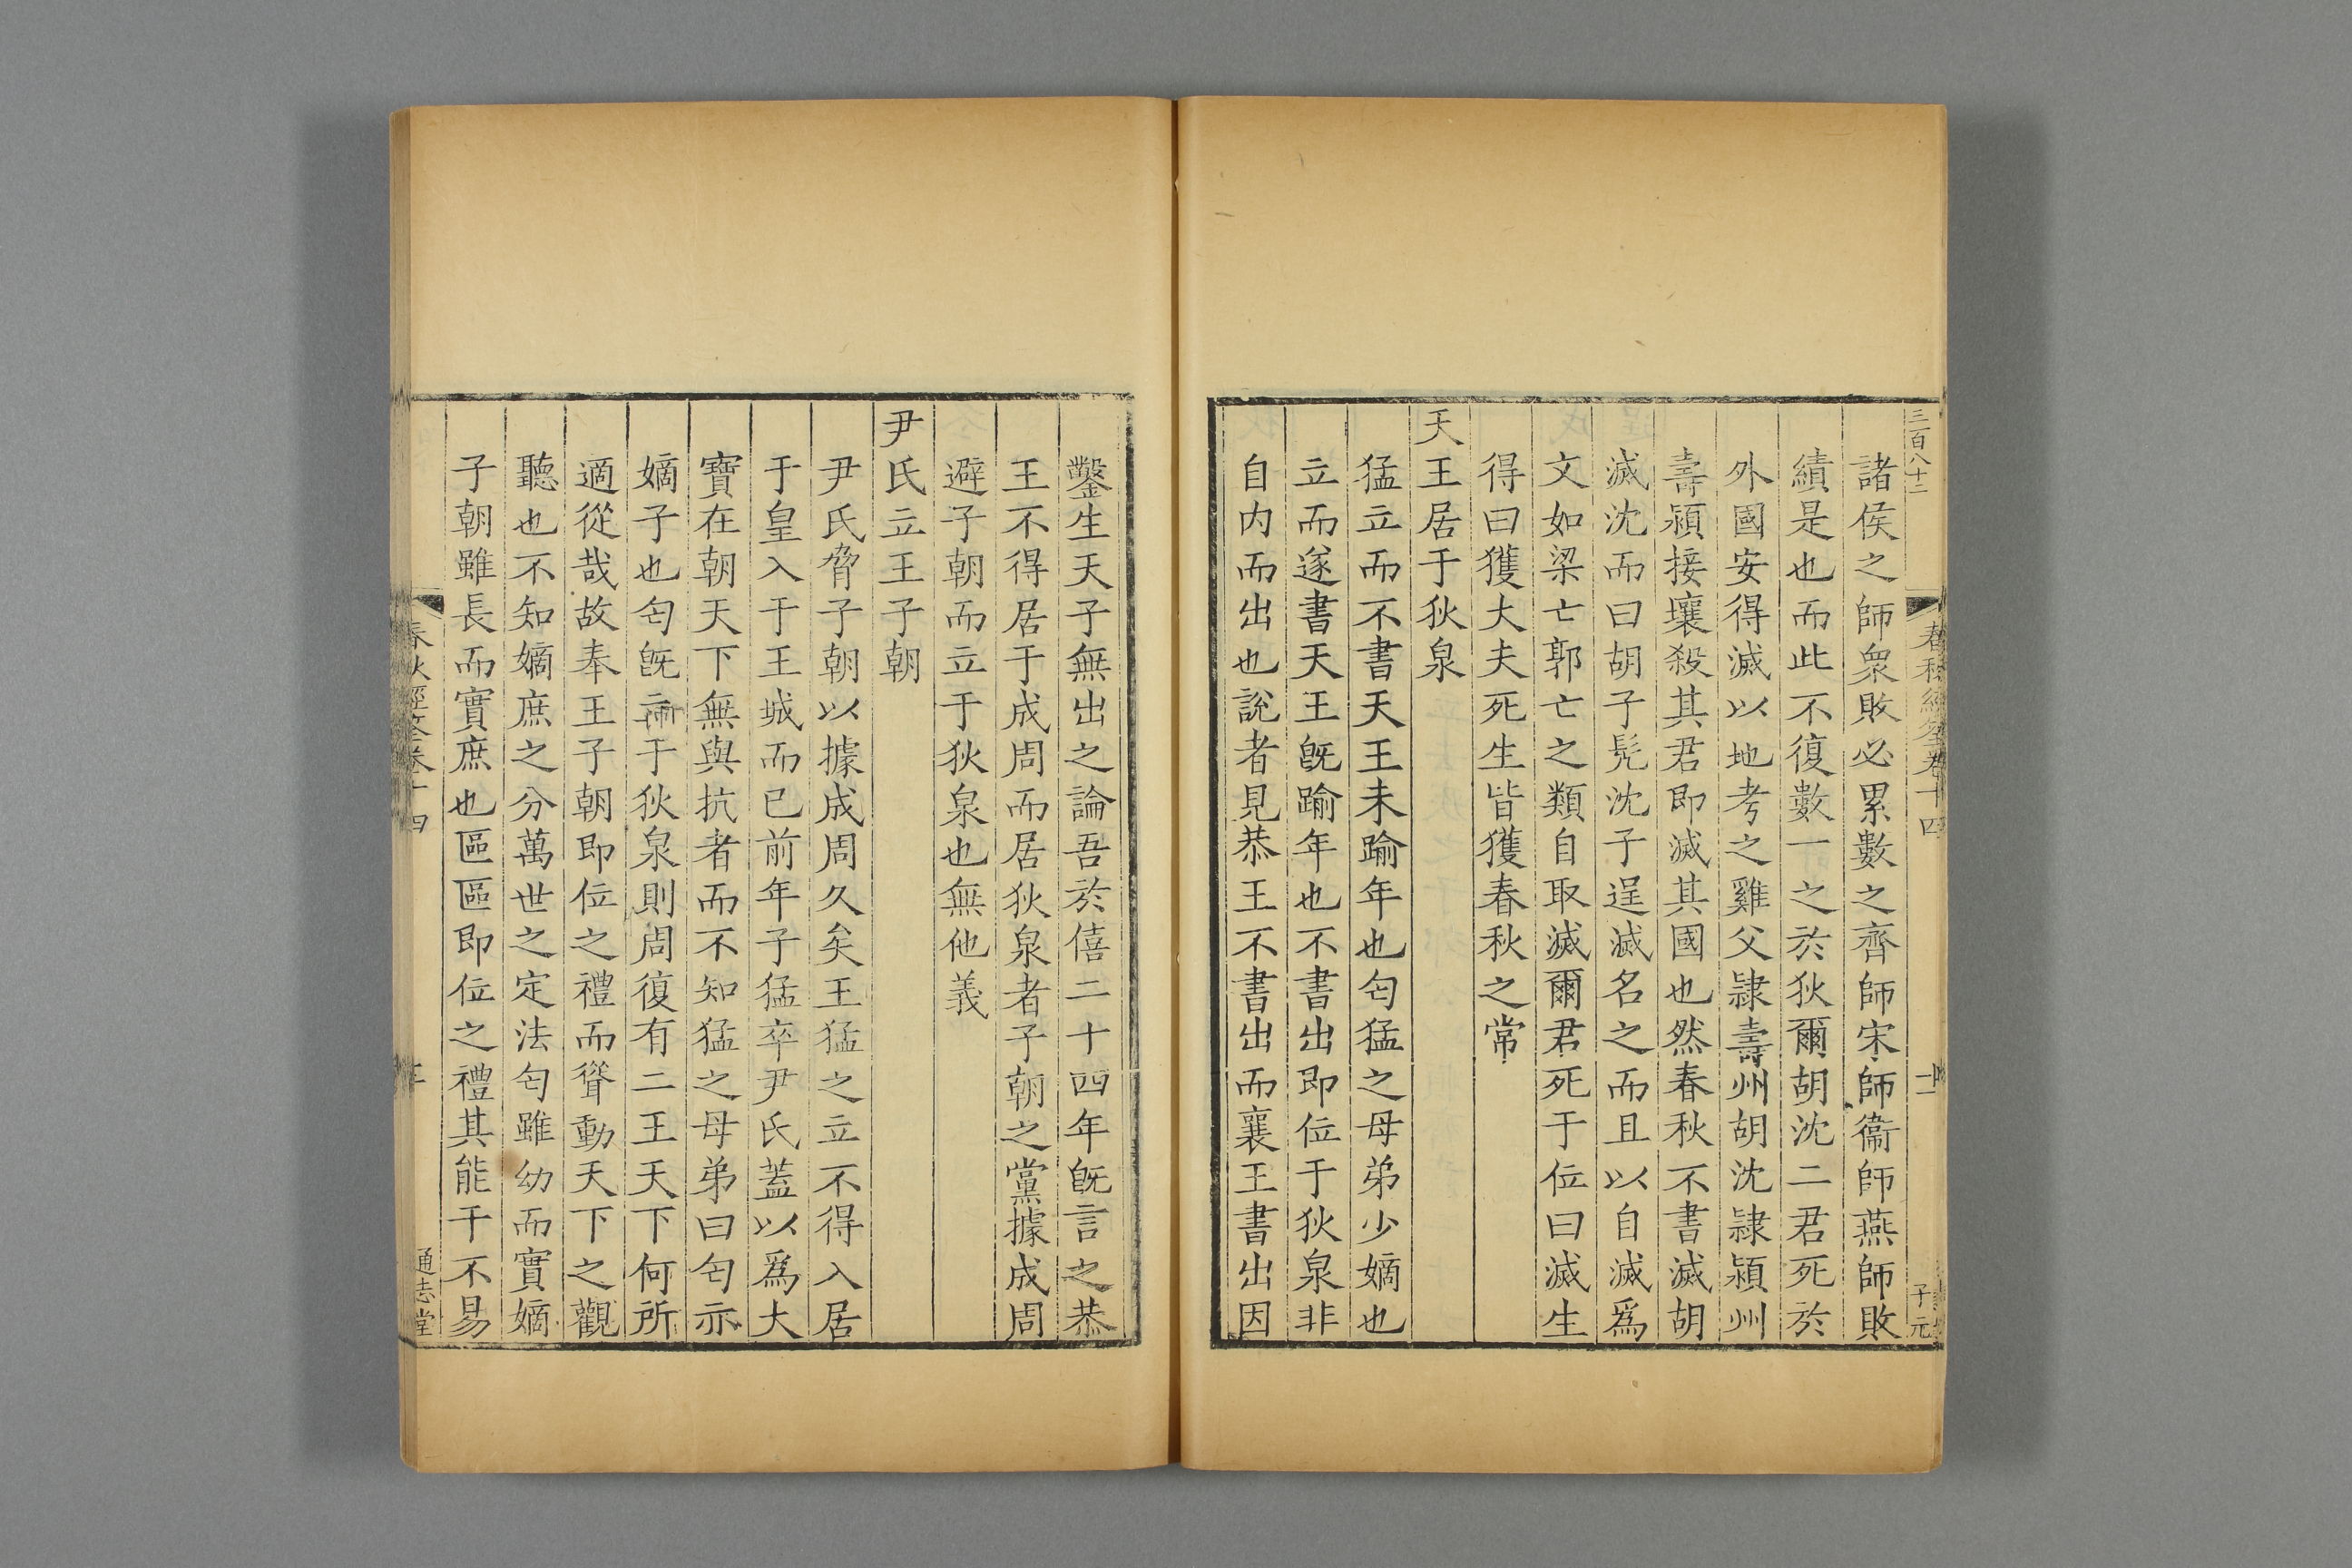 三百八十二
春秋經筌卷十四
子元
諸侯之師衆敗必累數之齊師宋師衞師燕師敗
績是也而此不復數一之於狄爾胡沈二君死於
外國安得滅以地考之雞父隷壽州胡沈隷潁州
壽潁接壤殺其君即滅其國也然春秋不書滅胡
滅沈而曰胡子髠沈子逞滅名之而且以自滅爲
文如梁亡郭亡之類自取滅爾君死于位曰滅生
得曰獲大夫死生皆獲春秋之常
天王居于狄泉
猛立而不書天王未踰年也匄猛之母弟少嫡也
立而遂書天王旣踰年也不書出即位于狄泉非
自内而出也說者見恭王不書出而襄王書出因
鑿生天子無出之論吾於僖二十四年旣言之恭
王不得居于成周而居狄泉者子朝之黨據成周
避子朝而立于狄泉也無他義
尹氏立王子朝
尹氏脅子朝以據成周久矣王猛之立不得入居
于皇入于王城而已前年子猛卒尹氏蓋以爲大
寶在朝天下無與抗者而不知猛之母弟曰匄亦
嫡子也匄旣立于狄泉則周復有二王天下何所
適從哉故奉王子朝即位之禮而聳動天下之觀
聽也不知嫡庶之分萬世之定法匄雖幼而實嫡
子朝雖長而實庶也區區即位之禮其能干不易
春秋經筌卷十四
通志堂